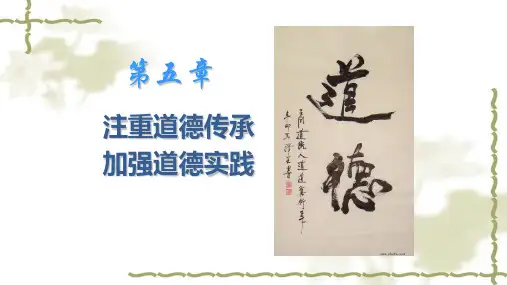 第五章
注重道德传承
加强道德实践
道德